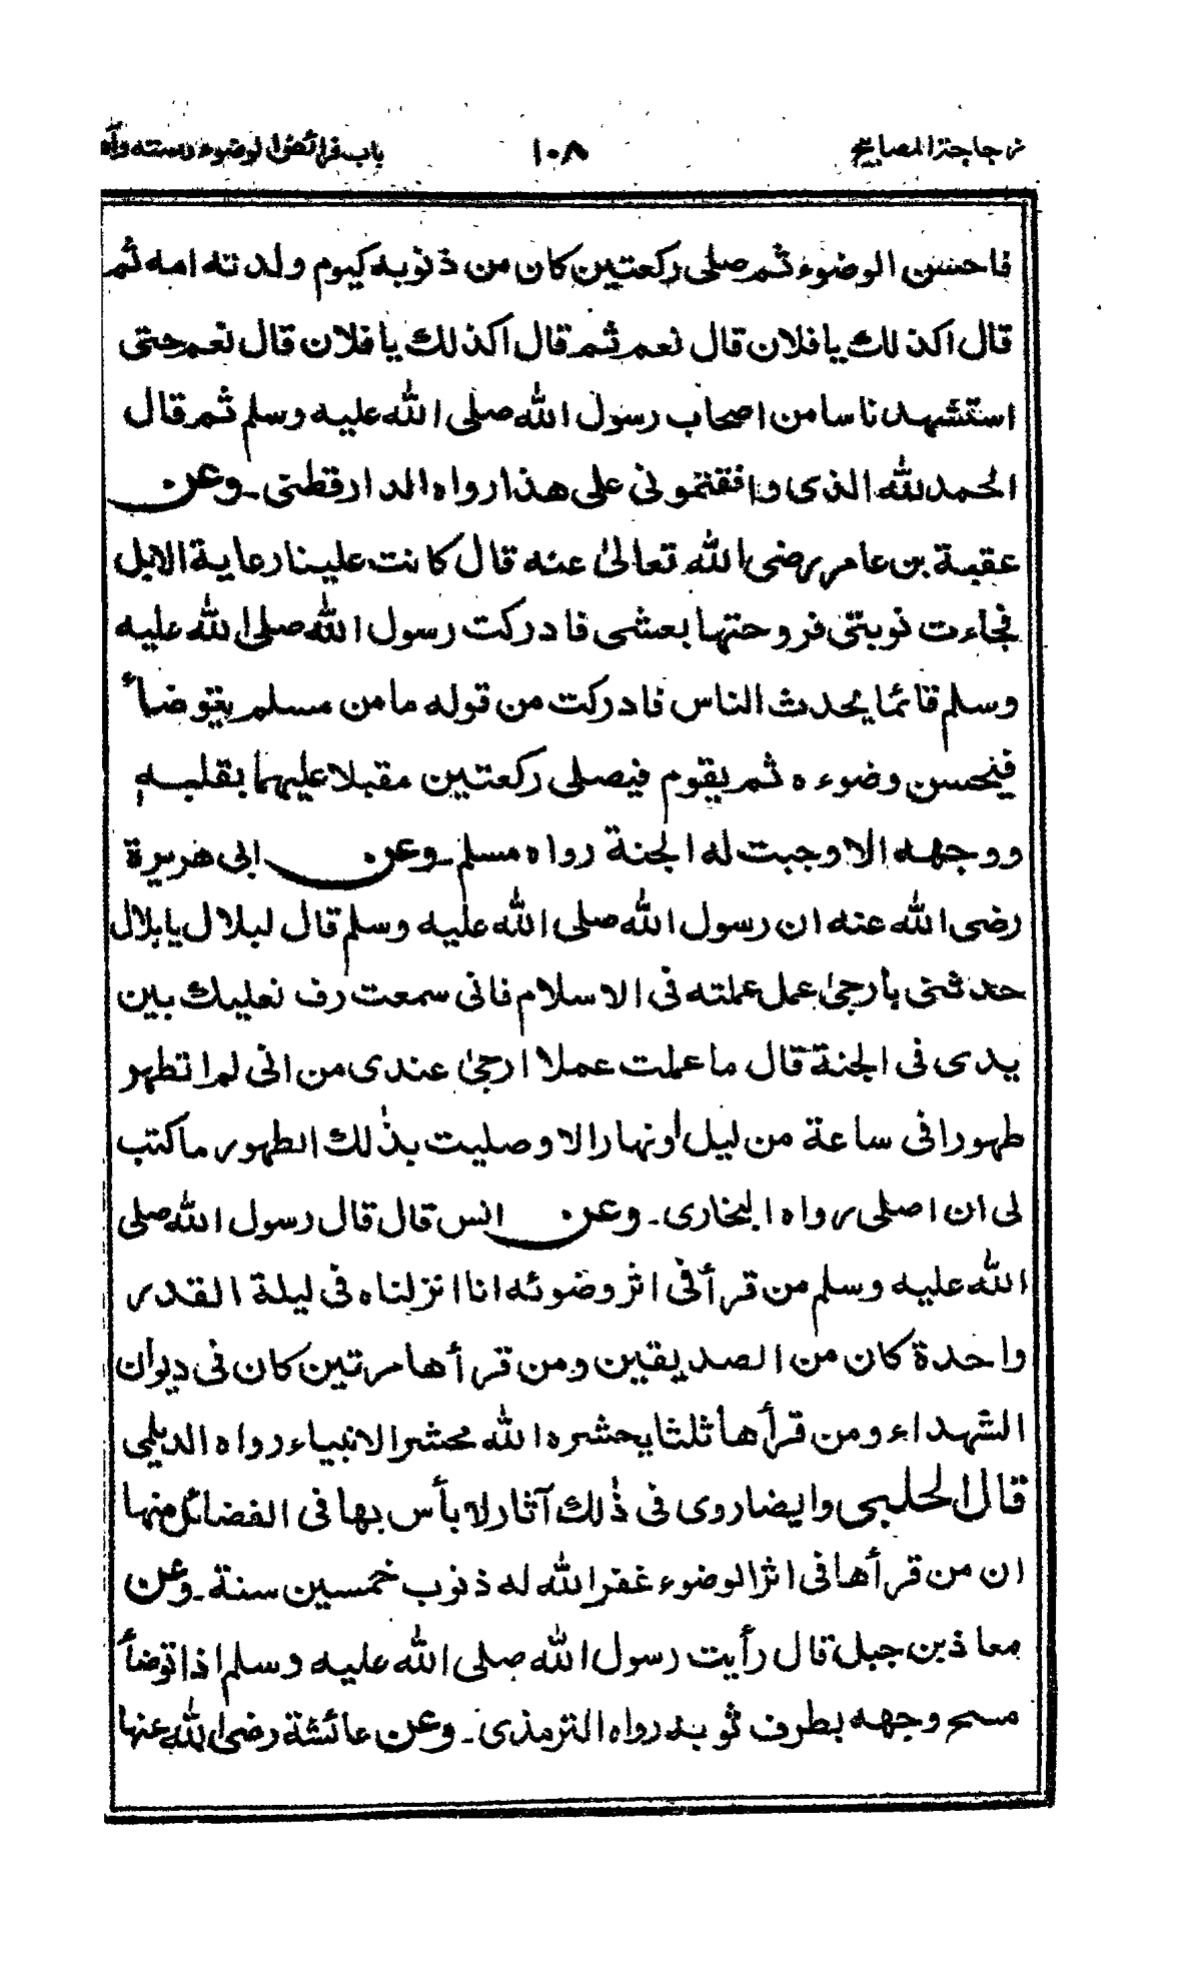 زجاجة المصابيح ١٠٨ باب فرائض الوضوء وسننه وآد
فاحسن الوضوء ثم صلى ركعتين كان من ذنوبه كيوم ولدته امه ثم
قال اكذلك يا فلان قال نعم ثم قال اكذلك يا فلان قال نعم حتى
استشهد ناسا من اصحاب رسول الله صلى الله عليه وسلم ثم قال
الحمد لله الذى وافقتمونى على هذا رواه الدار قطنى ـ وعن
عقبة بن عامر رضى الله تعالىٰ عنه قال كانت علينا رعاية الابل
فجاءت نوبتى فروحتها بعشى فادركت رسول الله صلى الله عليه
وسلم قائما يحدث الناس فادركت من قوله ما من مسلم يتوضأ
فيحسن وضوءه ثم يقوم فيصلى ركعتين مقبلا عليهما بقلبه
ووجهه الا وجبت له الجنة رواه مسلم ـ وعن ابى هريرة
رضى الله عنه ان رسول الله صلى الله عليه وسلم قال لبلال يا بلال
حدثنى بأرجىٰ عمل عملته فى الاسلام فانى سمعت دف نعليك بين
يدى فى الجنة قال ما عملت عملا ارجىٰ عندى من انى لم اتطهر
طهورا فى ساعة من ليل أو نهار الا وصليت بذٰلك الطهور ما كتب
لى ان اصلى رواه البخارى ـ وعن انس قال قال رسول الله صلى
الله عليه وسلم من قرأ فى اثر وضوئه انا انزلناه فى ليلة القدر
واحدة كان من الصديقين ومن قرأها مرتين كان فى ديوان
الشهداء ومن قرأها ثلثا يحشره الله محشر الانبياء رواه الديلمى
قال الحلبى وايضا روى فى ذٰلك آثار لا بأس بها فى الفضائل منها
ان من قرأها فى اثر الوضوء غفر الله له ذنوب خمسين سنة ـ وعن
معاذ بن جبل قال رأيت رسول الله صلى الله عليه وسلم اذا توضأ
مسح وجهه بطرف ثوبه رواه الترمذى ـ وعن عائشة رضى الله عنها